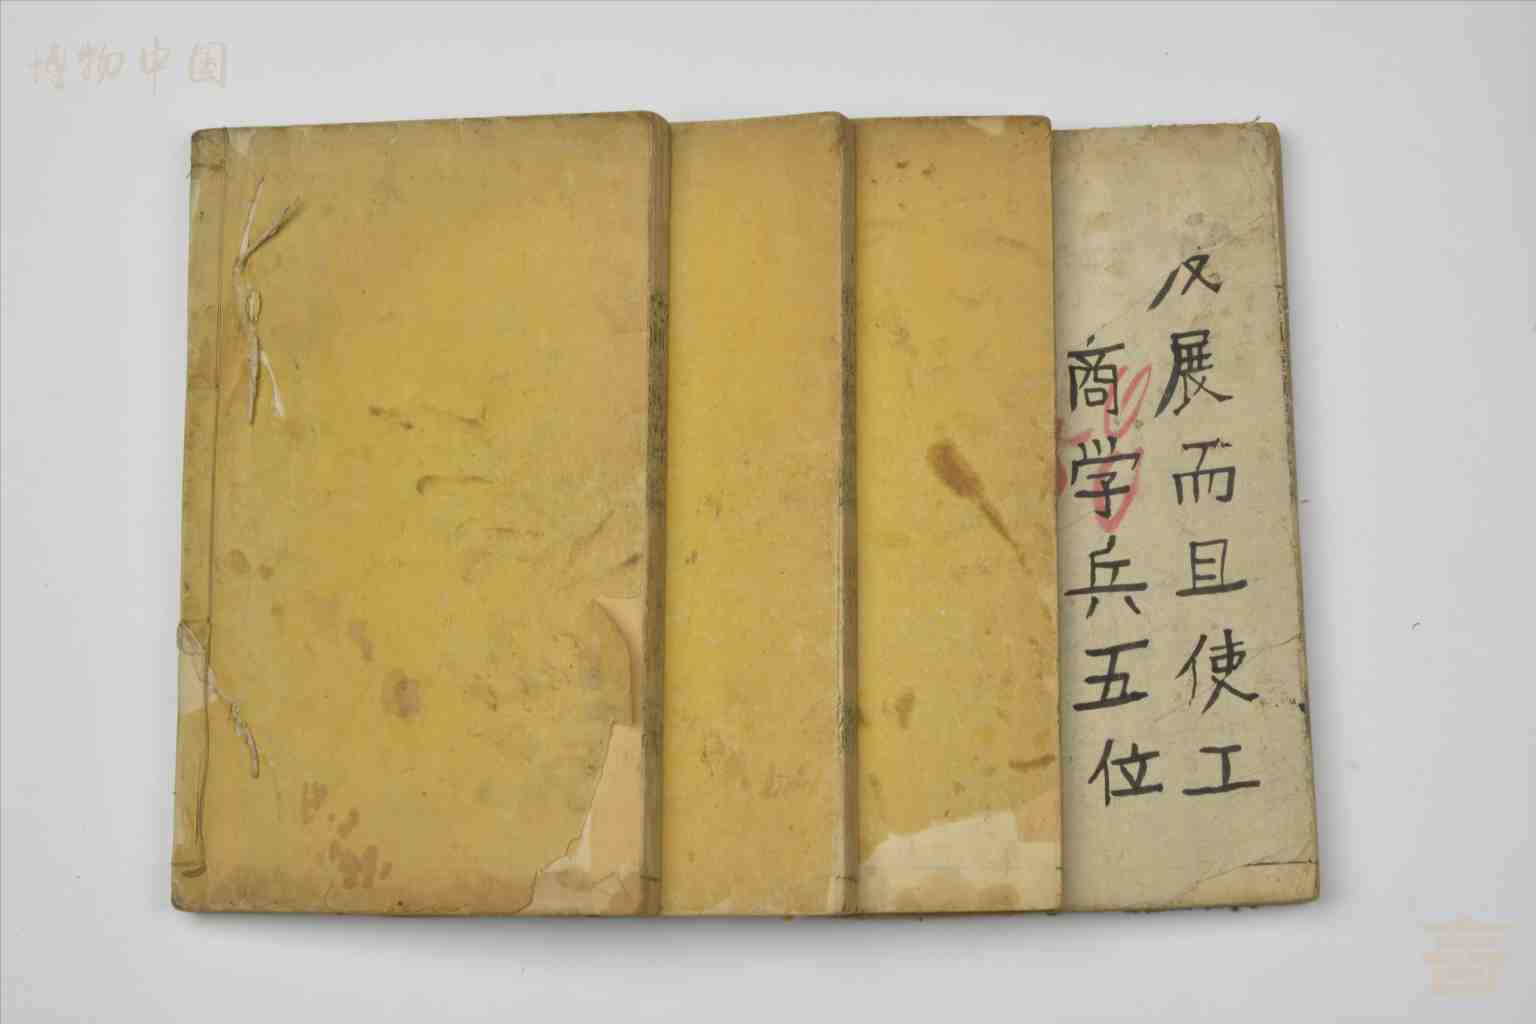 博物中国
及展而且使工
商学兵五位